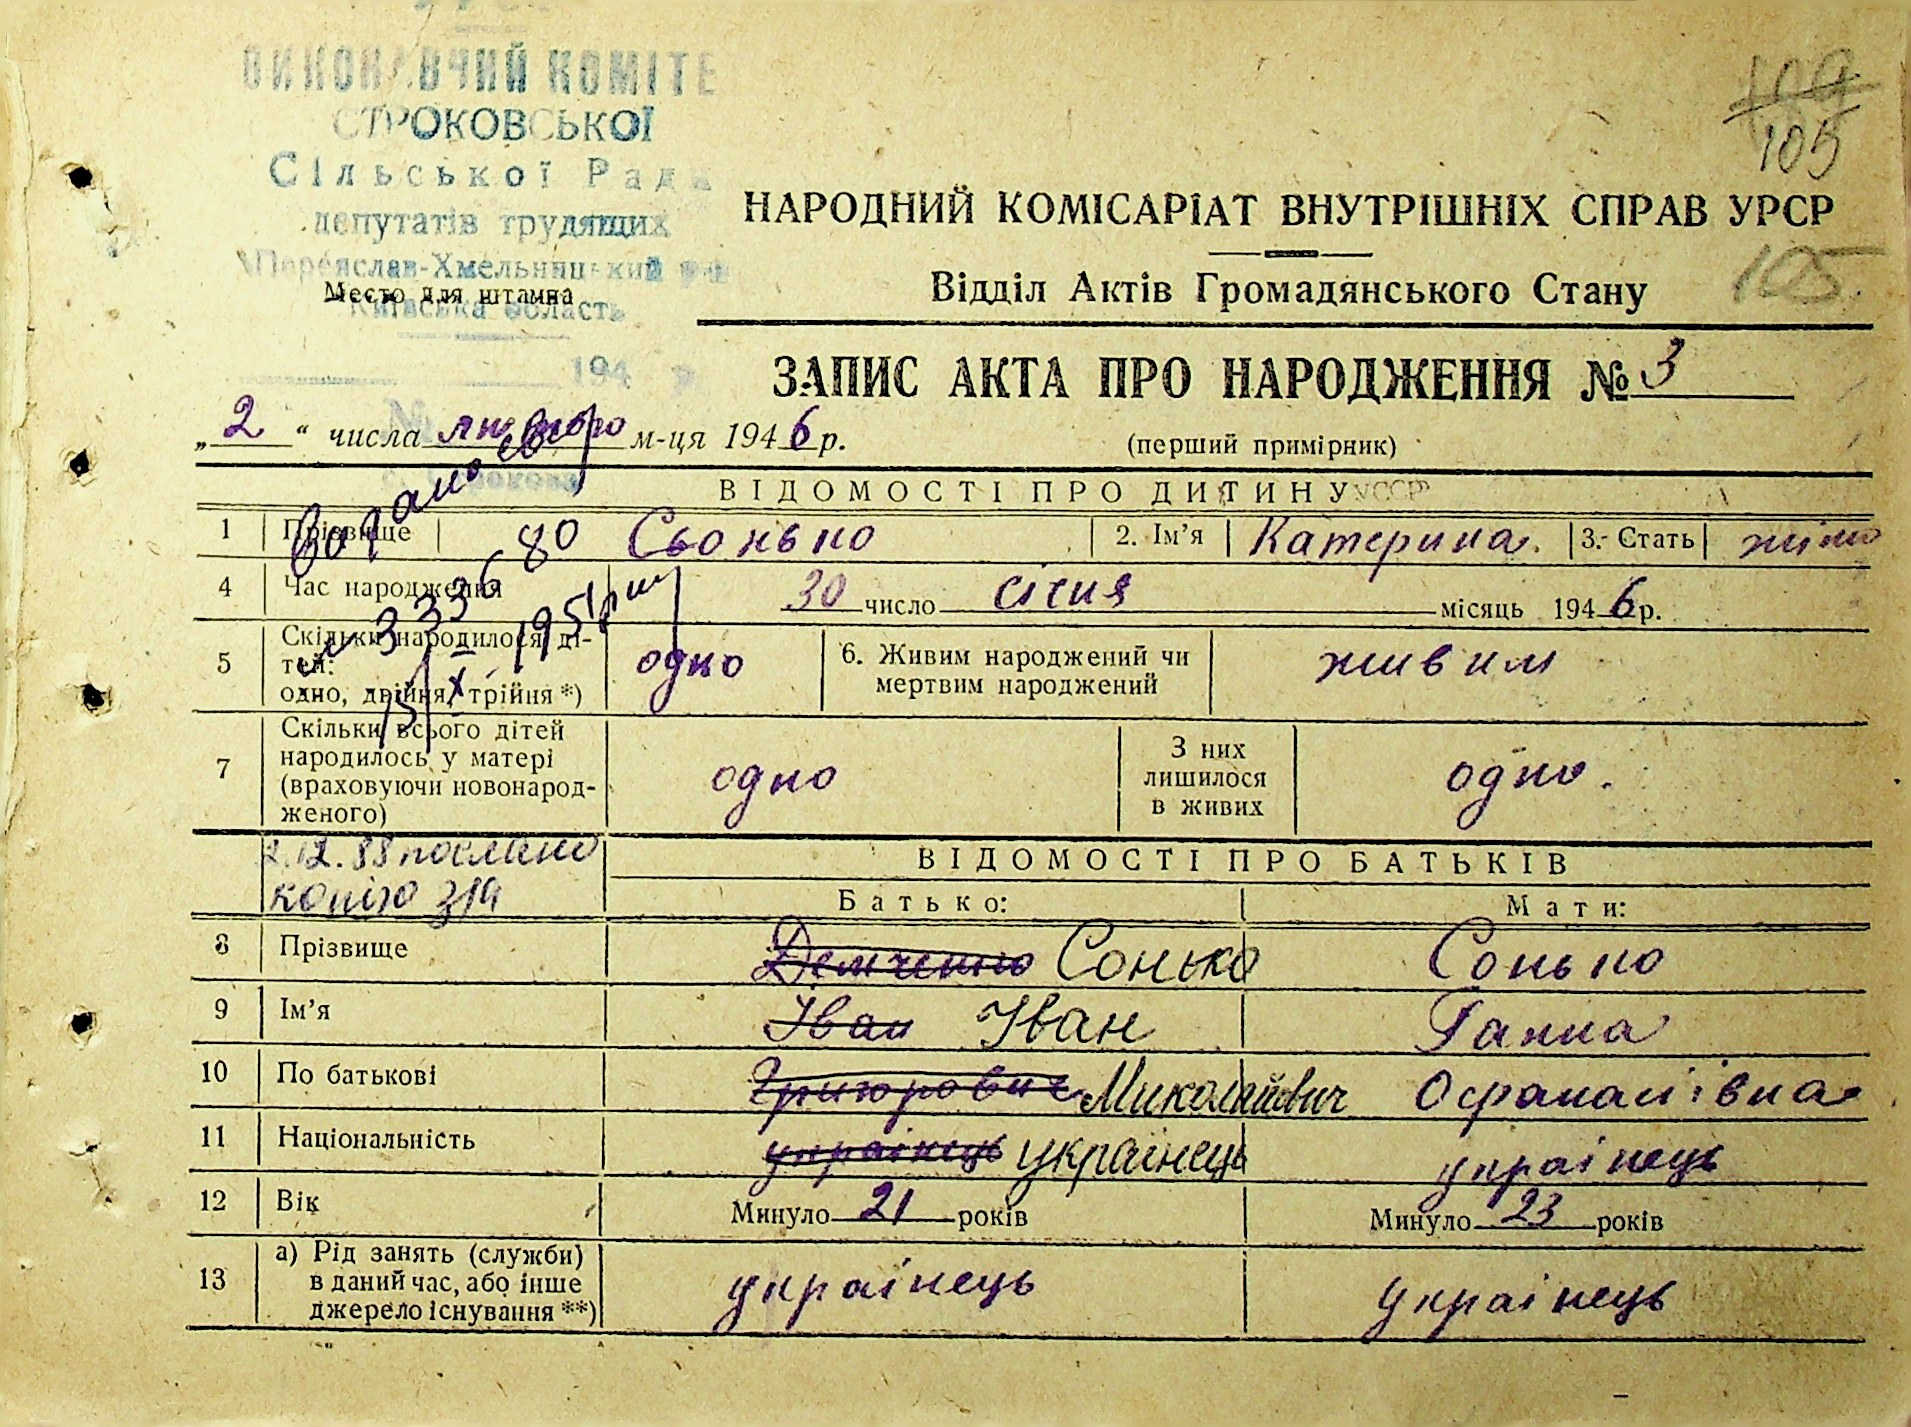 ВИКОНАВЧИЙ КОМІТЕ
СТРОКОВСЬКОЇ
Сільської Рад
депутатів трудящих
Переяслав-Хмельницький
Київська область
Место для штампа
194
109
105
НАРОДНИЙ КОМІСАРІАТ ВНУТРІШНІХ СПРАВ УРСР
Відділ Актів Громадянського Стану
105
ЗАПИС АКТА ПРО НАРОДЖЕННЯ № 3
„2“ числа лютого м-ця 1946 р.
(перший примірник)
ВІДОМОСТІ ПРО ДИТИНУ
1 Прізвище Сьонько 2. Ім’я Катерина. 3. Стать жіно
4 Час народження 30 число січня місяць 1946 р.
5 Скільки народилося ді-
тей:
одно, двійня, трійня *) одно 6. Живим народжений чи
мертвим народжений живим
7 Скільки всього дітей
народилось у матері
(враховуючи новонарод-
женого) одно З них
лишилося
в живих одно.
2.12.88 послано
копію з/а
ВІДОМОСТІ ПРО БАТЬКІВ
Батько: Мати:
8 Прізвище Демченко Сонько Сонько
9 Ім’я Іван Іван Ганна
10 По батькові Григорович Миколайович Офанасіївна
11 Національність українець українець українець
12 Вік Минуло 21 років Минуло 23 років
13 а) Рід занять (служби)
в даний час, або інше
джерело існування **) українець українець